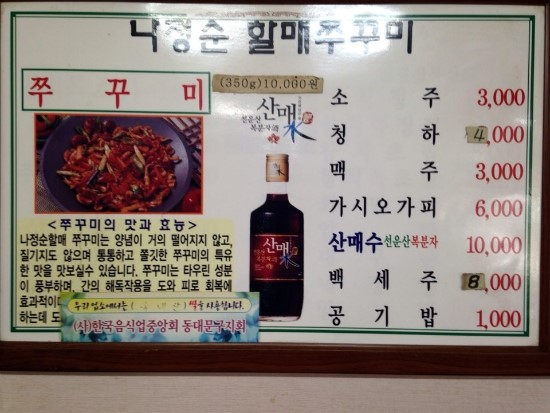 나정순 할매쭈꾸미
쭈 꾸 미
(350g)10,000원
산매수
선운산
복분자주
소 주 3,000
청 하 4,000
맥 주 3,000
가시오가피 6,000
산매수선운산복분자 10,000
백 세 주 8,000
공 기 밥 1,000
<쭈꾸미의 맛과 효능>
나정순할매 쭈꾸미는 양념이 거의 떨어지지 않고,
질기지도 않으며 통통하고 쫄깃한 쭈꾸미의 특유
한 맛을 맛보실수 있습니다. 쭈꾸미는 타우린 성분
이 풍부하며, 간의 해독작용을 도와 피로 회복에
효과적이
하는데 도
우리 업소에서는 ( ) 쌀을 사용합니다.
(사)한국음식업중앙회 동대문구지회
산매